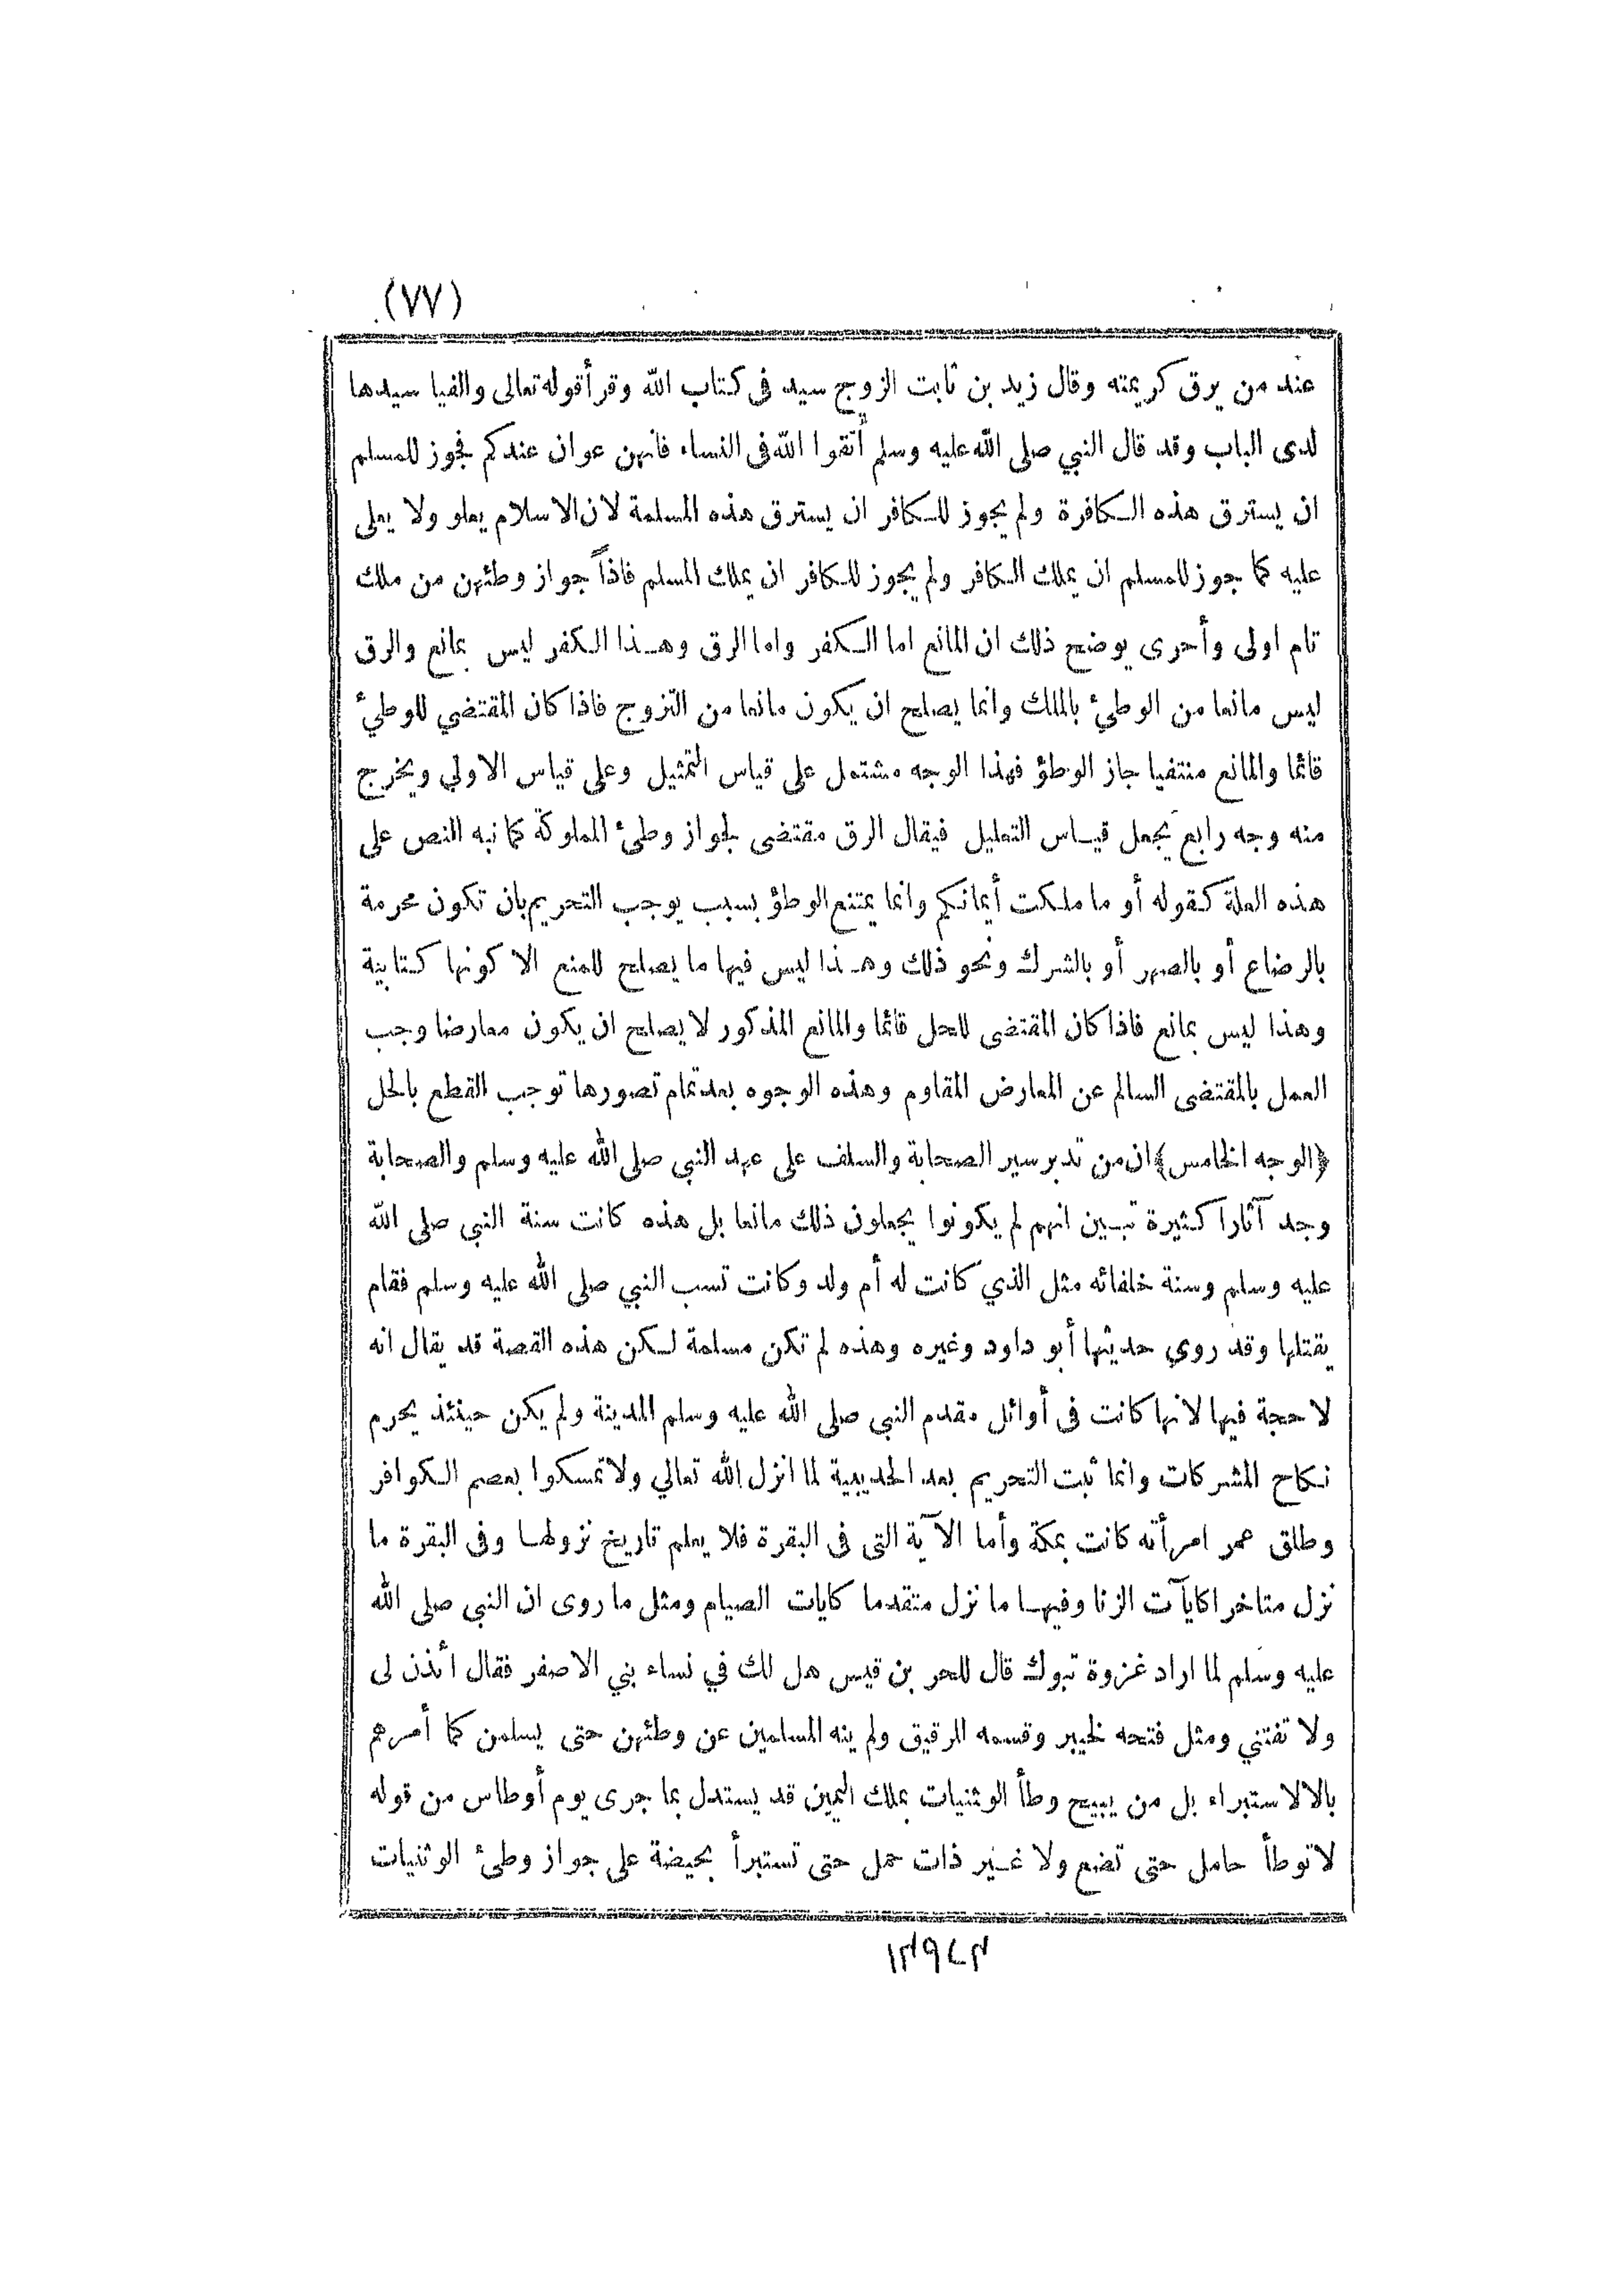 (٧٧)
عند من يرق كريمته وقال زيد بن ثابت الزوج سيد فى كتاب الله وقرأ قوله تعالى والفيا سيدها
لدى الباب وقد قال النبي صلى الله عليه وسلم أتقوا الله فى النساء فانهن عوان عندكم فجوز للمسلم
ان يسترق هذه الكافرة ولم يجوز للكافر ان يسترق هذه المسلمة لان الاسلام يعلو ولا يعلى
عليه كما جوز للمسلم ان يملك الكافر ولم يجوز للكافر ان يملك المسلم فاذاً جواز وطئهن من ملك
تام اولى وأحرى يوضح ذلك ان المانع اما الكفر واما الرق وهذا الكفر ليس بمانع والرق
ليس مانعا من الوطئ بالملك وانما يصلح ان يكون مانعا من التزوج فاذا كان المقتضي للوطئ
قائما والمانع منتفيا جاز الوطؤ فهذا الوجه مشتمل على قياس التمثيل وعلى قياس الاولي ويخرج
منه وجه رابع يجعل قياس التعليل فيقال الرق مقتضى لجواز وطئ المملوكة كما نبه النص على
هذه العلة كقوله أو ما ملكت أيمانكم وانما يمتنع الوطؤ بسبب يوجب التحريم بان تكون محرمة
بالرضاع أو بالصهر أو بالشرك ونحو ذلك وهذا ليس فيها ما يصلح للمنع الا كونها كتابية
وهذا ليس بمانع فاذا كان المقتضى للحل قائما والمانع المذكور لا يصلح ان يكون معارضا وجب
العمل بالمقتضى السالم عن المعارض المقاوم وهذه الوجوه بعد تمام تصورها توجب القطع بالحل
﴿الوجه الخامس﴾ ان من تدبر سير الصحابة والسلف على عهد النبي صلى الله عليه وسلم والصحابة
وجد آثارا كثيرة تبين انهم لم يكونوا يجعلون ذلك مانعا بل هذه كانت سنة النبي صلى الله
عليه وسلم وسنة خلفائه مثل الذي كانت له أم ولد وكانت تسب النبي صلى الله عليه وسلم فقام
يقتلها وقد روي حديثها أبو داود وغيره وهذه لم تكن مسلمة لكن هذه القصة قد يقال انه
لا حجة فيها لانها كانت فى أوائل مقدم النبي صلى الله عليه وسلم المدينة ولم يكن حينئذ يحرم
نكاح المشركات وانما ثبت التحريم بعد الحديبية لما انزل الله تعالي ولا تمسكوا بعصم الكوافر
وطلق عمر امرأته كانت بمكة وأما الآية التى فى البقرة فلا يعلم تاريخ نزولها وفى البقرة ما
نزل متاخرا كايآت الزنا وفيها ما نزل متقدما كايات الصيام ومثل ما روى ان النبي صلى الله
عليه وسلم لما اراد غزوة تبوك قال للحر بن قيس هل لك في نساء بني الاصفر فقال أئذن لى
ولا تفتني ومثل فتحه لخيبر وقسمه للرقيق ولم ينه المسلمين عن وطئهن حتى يسلمن كما أمرهم
بالالاستبراء بل من يبيح وطأ الوثنيات بملك اليمين قد يستدل بما جرى يوم أوطاس من قوله
لا توطأ حامل حتى تضع ولا غير ذات حمل حتى تستبرأ بحيضة على جواز وطئ الوثنيات